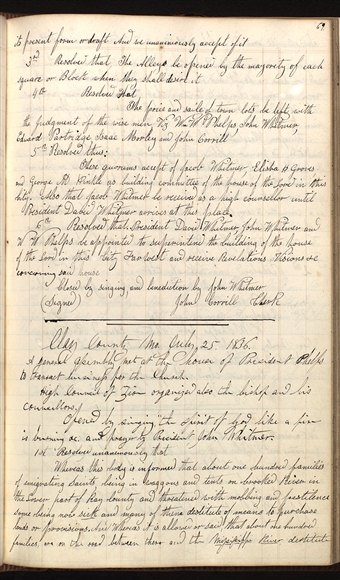 69
its present form or draft And we unanimously accept of it
3rd Resolved that The Alleys be opened by the majority of each
square or Block when they shall desire it
4th Resolved that
The price and sail of town lots be left with
the Judgment of the wise men Viz Wm W. Phelps John Whitmer,
Edward Partridge Isaac Morley and John Corrill
5th Resolved thus:
These quorums accept of Jacob Whitmer, Elisha H Groves
and George M Hinkle as building committee of the house of the Lord in this
city. Also that Jacob Whitmer be received as a high counsellor until
President David Whitmer arrives at this place
6th Resolved that President David Whitmer, John Whitmer and
W. W. Phelps be appointed to superintend the building of the house
of the Lord in this City Far West and receive Revelations Visions &c
concerning said house
Closed by singing and benediction by John Whitmer
(Signed) John Corrill Clerk
Clay County Mo. July 25 1836.
A general assembly met at the house of President Phelps
to transact business for the Church.
High Council of Zion organized also the bishop and his
councellors,
Opened by singing the spirit of God like a fire
is burning &c. and prayer by President John Whitmer.
1st Resolved unanimously that
Whereas this body is informed that about one hundred families
of emigrating saints, being in waggons and tents on Crooked River in
the lower part of Ray County and threatened with mobbing and pestilence
some being now sick and many of them destitute of means to purchase
lands or provisions. And whereas it is allowed or said that about one hundred
families, are on the road between there and the Mississippi River destitute